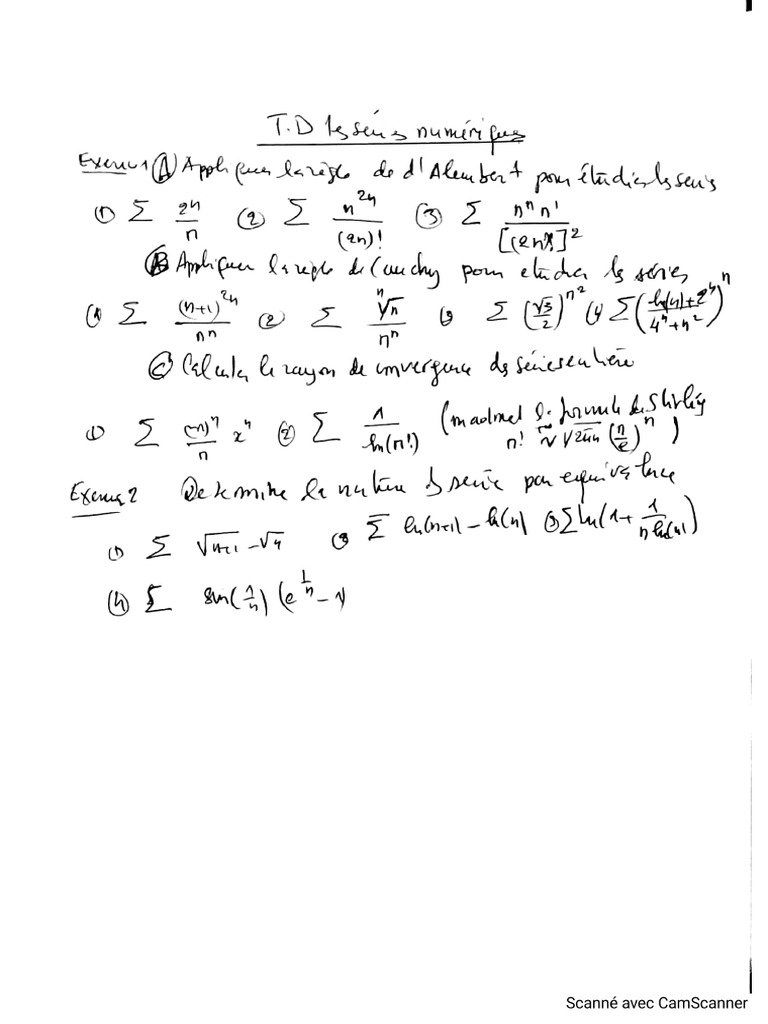 T.D les séries numériques
Exercice 1 Ⓐ Appliquer la règle de d'Alembert pour étudier les séries
① Σ 2n/n ② Σ n^{2n}/(2n)! ③ Σ n^n n!/[(2n)!]^2
Ⓑ Appliquer la règle de Cauchy pour etudier les séries
① Σ (n+1)^{2n}/n^n ② Σ ⁿ√n/n^n ③ Σ (√3/2)^{n^2} ④ Σ((ln(n)+2^n)/(4^n+n^2))^n
Ⓒ Calculer le rayon de convergence des séries entière
① Σ (-1)^n/n x^n ② Σ 1/ln(n!) (formule de Stirling
n! ~ √2πn (n/e)^n)
Exercice 2 Determiner la nature de serie par equivalence
① Σ √n+1 - √n ② Σ ln(n+1) - ln(n) ③ Σ ln(1 + 1/(n ln(n)))
④ Σ sin(1/n) (e^{1/n} - 1)
Scanné avec CamScanner